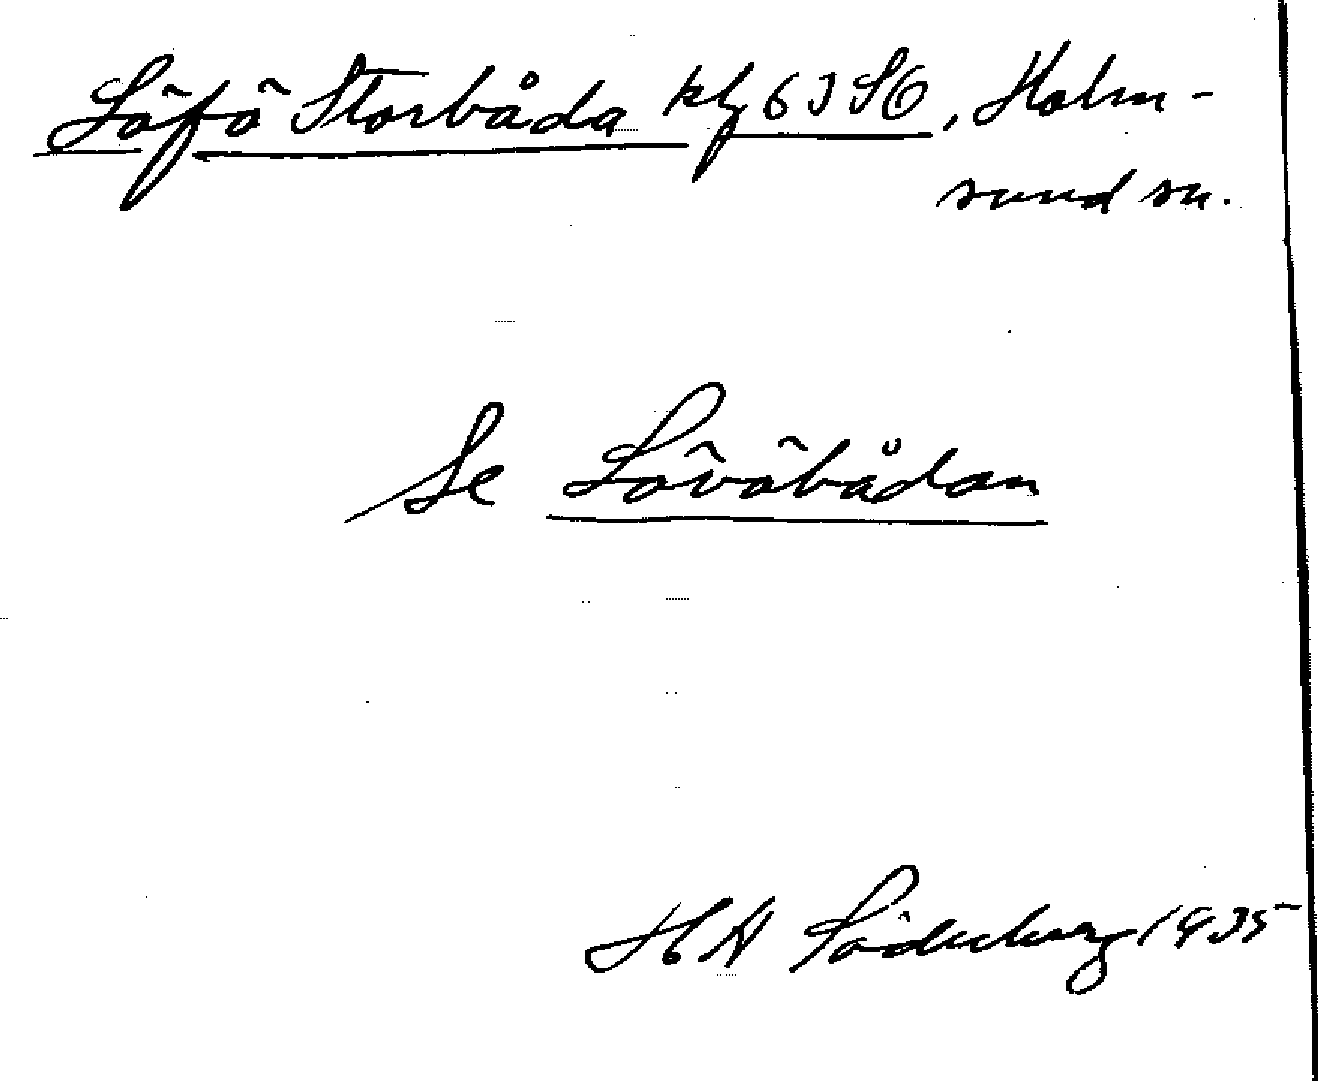 Löfö Storbåda kf 63 SO, Holm-
sund sn.
Se Lövöbådan
H A Söderberg 1935